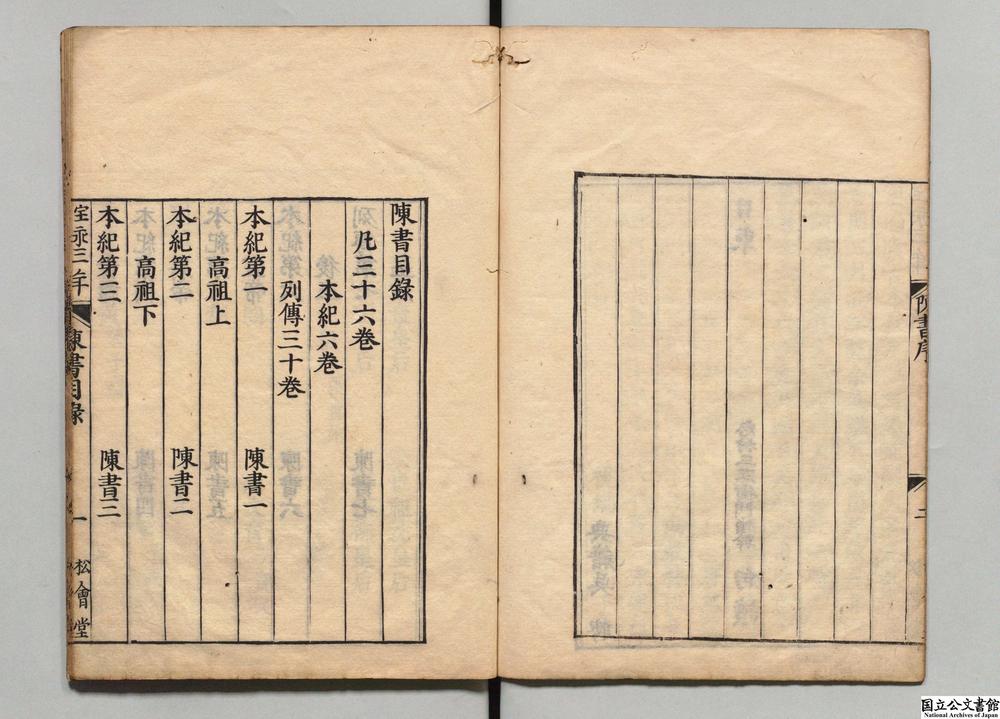 陳書序
二
陳書目錄
凡三十六卷
本紀六卷
列傳三十卷
本紀第一 陳書一
高祖上
本紀第二 陳書二
高祖下
本紀第三 陳書三
宝永三年 陳書目錄 一 松會堂
国立公文書館
National Archives of Japan